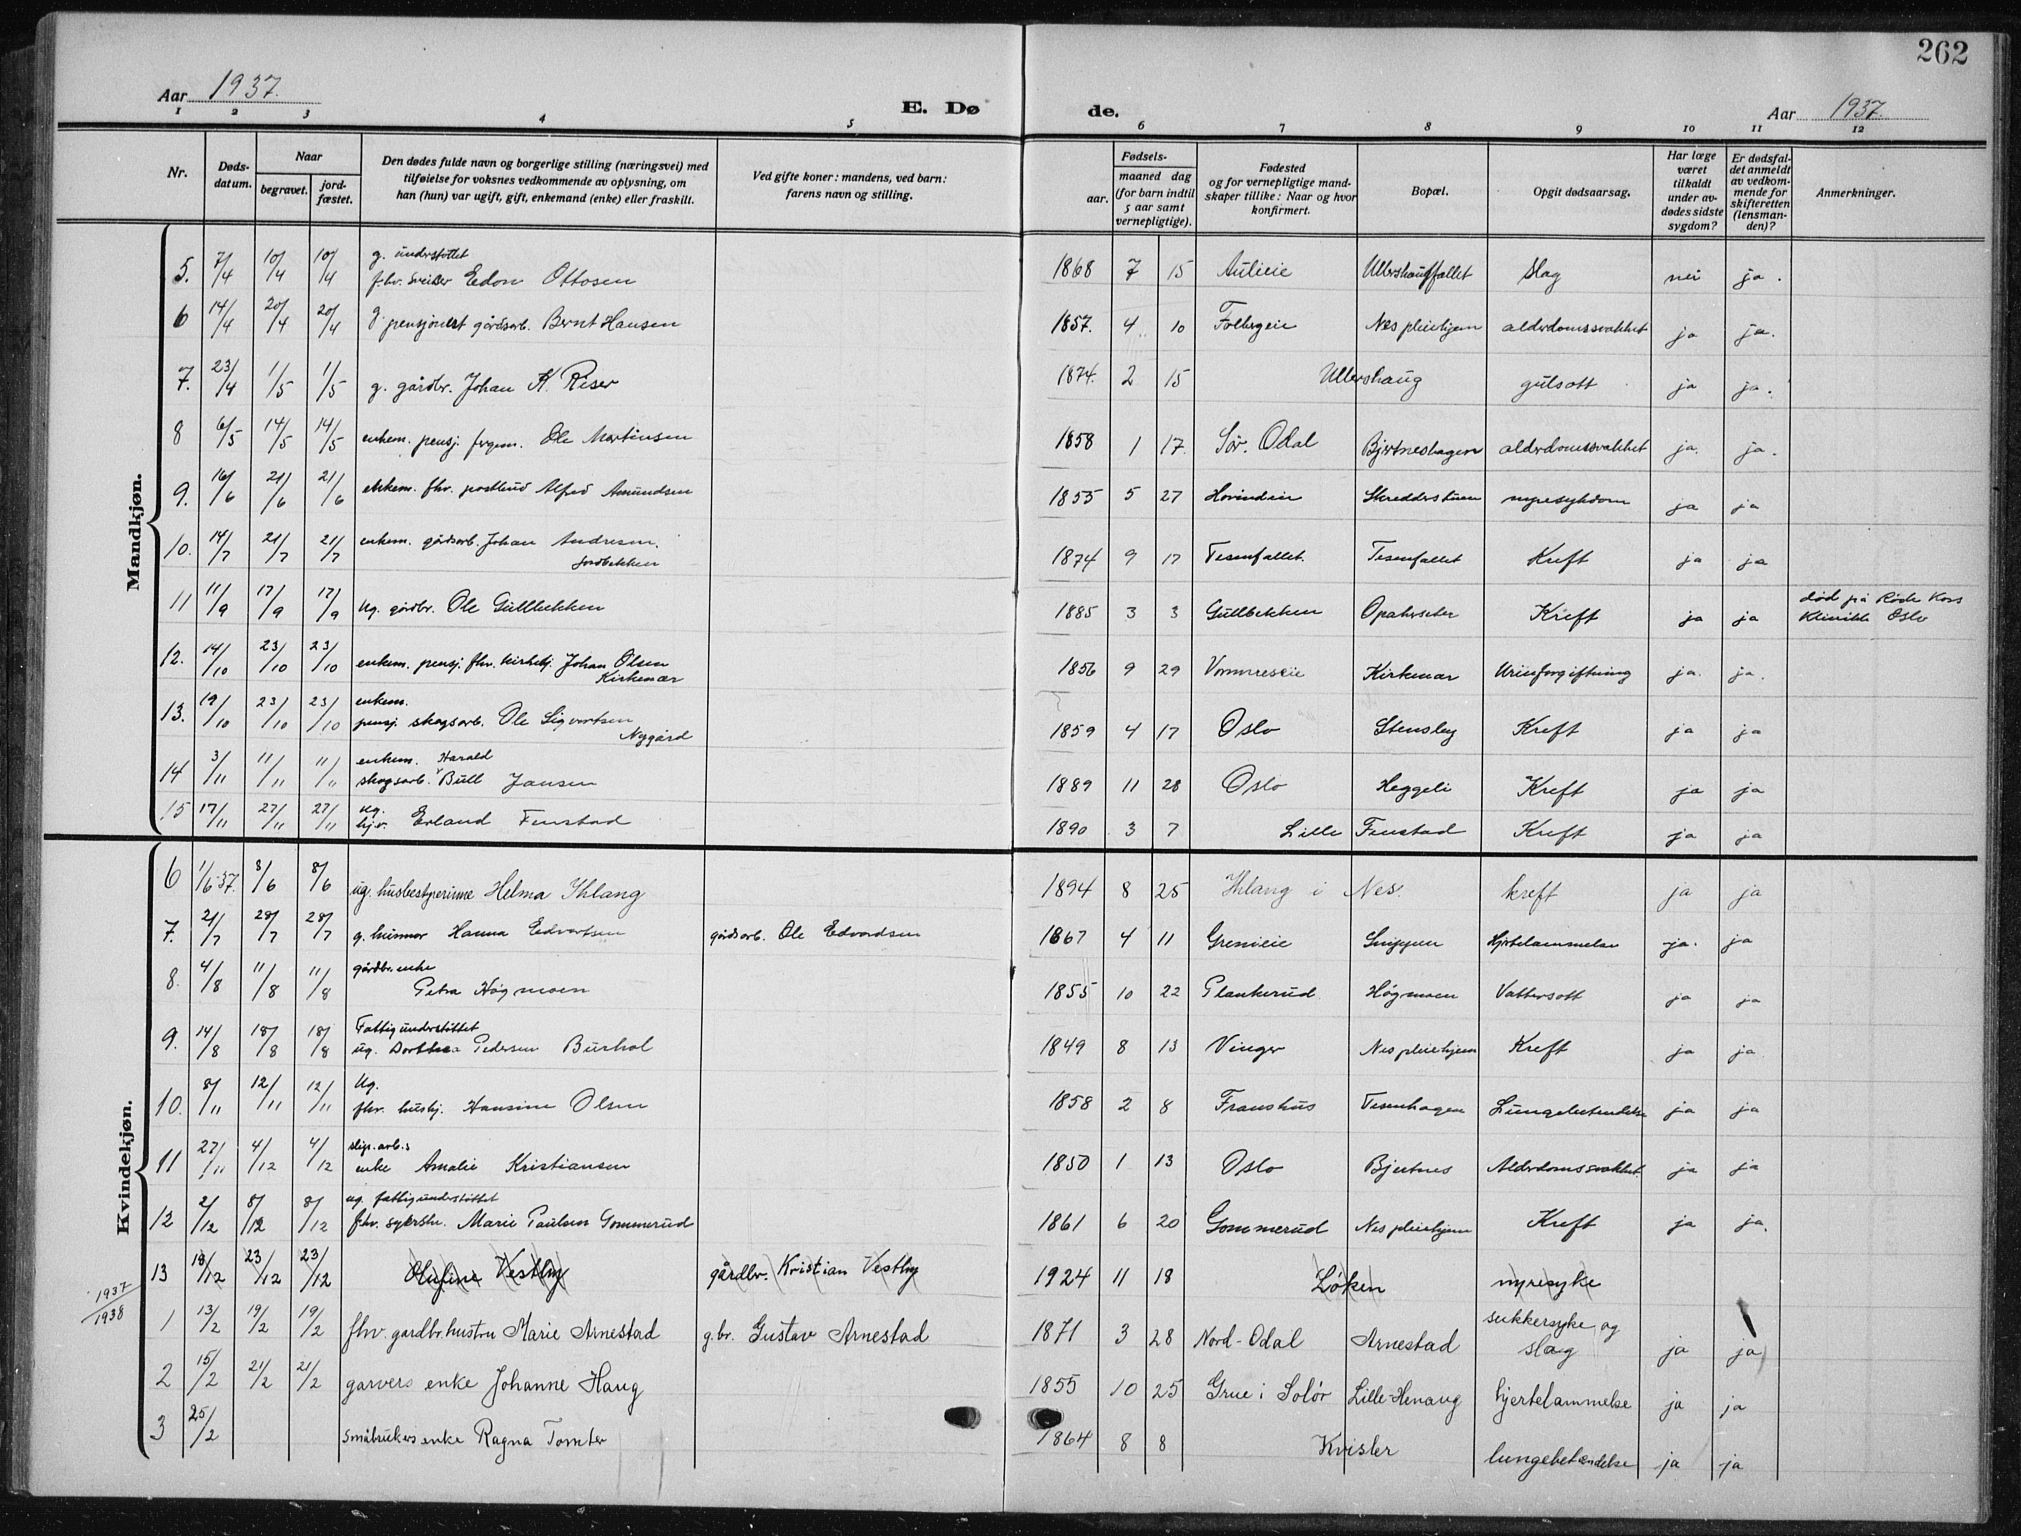 262
Aar 1937. E. Dø de. Aar 1937.
1 2 3 4 5 6 7 8 9 10 11 12
Nr. Døds-datum. Naar begravet. jord-fæstet. Den dødes fulde navn og borgerlige stilling (næringsvei) med tilføielse for voksnes vedkommende av oplysning, om han (hun) var ugift, gift, enkemand (enke) eller fraskilt. Ved gifte koner: mandens, ved barn: farens navn og stilling. Fødsels- aar. maaned dag (for barn indtil 5 aar samt vernepligtige). Fødested og for vernepligtige mand-skaper tillike: Naar og hvor konfirmert. Bopæl. Opgit dødsaarsag. Har læge været tilkaldt under av-dødes sidste sygdom? Er dødsfal-det anmeldt av vedkom-mende for skifteretten (lensman-den)? Anmerkninger.
Mandkjøn.
5. 7/4 10/4 10/4 g. understøttet fhv. sveiser Edon Ottosen 1868 7 15 Aulieie Ullershaugfallet Slag nei ja.
6 14/4 20/4 20/4 g. pensjonert gårdsarb. Bernt Hansen 1857. 4 10 Folbergeie Nes pleiehjem alderdomssvakhet ja ja.
7. 23/4 1/5 1/5 g. gårdbr. Johan K. Riser 1874. 2 15 Ullershaug gulsott ja ja.
8 6/5 14/5 14/5 enkem. pensj. Ole Martinsen 1858 1 17. Sør. Odal Bjertneshagen alderdomssvakhet ja. ja.
9. 16/6 21/6 21/6 enkem. fhv. postbud Alfred Amundsen 1855 5 27 Hovindeie Skredderstuen nyresykdom ja ja
10. 14/7 21/7 21/7 enkem. gårdsarb. Johan Andresen. Jordbekken 1874 9 17 Tesenfallet. Tesenfallet Kreft ja ja
11 11/9 17/9 17/9 ug. gårdbr. Ole Gullbekken 1885 3 3 Gullbekken Opakerseter Kreft ja ja død på Røde Kors Klinikk Oslo
12. 14/10 23/10 23/10 enkem. pensj. fhv. kirketj. Johan Olsen Kirkenær 1856 9 29 Vormneseie Kirkenær Urinforgiftning ja. ja.
13. 19/10 23/10 23/10 enkem. pensj. skogsarb. Ole Sigvartsen Nygård 1859 4 17 Oslo Stensby Kreft ja ja
14 3/11 11/11 11/11 enkem. skogsarb. Harald Bull Jansen 1889 11 28 Oslo Heggeli Kreft ja ja
15 17/11 27/11 27/11 ug. hjv. Erland Finstad 1890 3 7 Lille Finstad Kreft ja ja
Kvindekjøn.
6 1/6-37. 8/6 8/6 ug. husbestyrerinne Helma Ihlang 1894 8 25 Ihlang i Nes. kreft ja ja
7. 21/7 28/7 28/7 g. husmor Hanna Edvartsen gårdsarb. Ole Edvardsen 1867 4 11 Grenieie Snippen Hjertelammelse ja. ja
8. 4/8 11/8 11/8 gårdbr. enke Petra Høgmoen 1855 10 22 Plankerud Høgmoen Vattersott ja ja
9. 14/8 18/8 18/8 Fattigunderstøttet ug. Dorthea Pedersen Burhol 1849 8 13 Vinger Nes pleiehjem Kreft ja ja
10. 8/11 12/11 12/11 ug. fhv. hushj. Hansine Olsen 1858 2 8 Franshus Tesenhagen Lungebetendelse ja ja
11 27/11 4/12 4/12 slip. arb.s enke Amalie Kristiansen 1850 1 13 Oslo Bjertnes Alderdomssvakhet ja ja
12 2/12 8/12 8/12 ug. fattigunderstøttet fhv. syerske. Marie Paulsen Gommerud 1861 6 20 Gommerud Nes pleiehjem Kreft ja ja.
13 18/12 23/12 23/12 Olufine Vestby gårdbr. Kristian Vestby 1924 11 18 Løken nyresyke
1937/1938
1 13/2 19/2 19/2 fhv. gardbr. hustru Marie Arnestad g.br. Gustav Arnestad 1871 3 28 Nord-Odal Arnestad sukkersyke og slag ja ja
2 15/2 21/2 21/2 garvers enke Johanne Haug 1855 10 25 Grue i Solør Lille-Henaug hjertelammelse ja ja
3 25/2 småbrukers enke Ragna Tomter 1864 8 8 Kvisler lungebetændelse ja ja